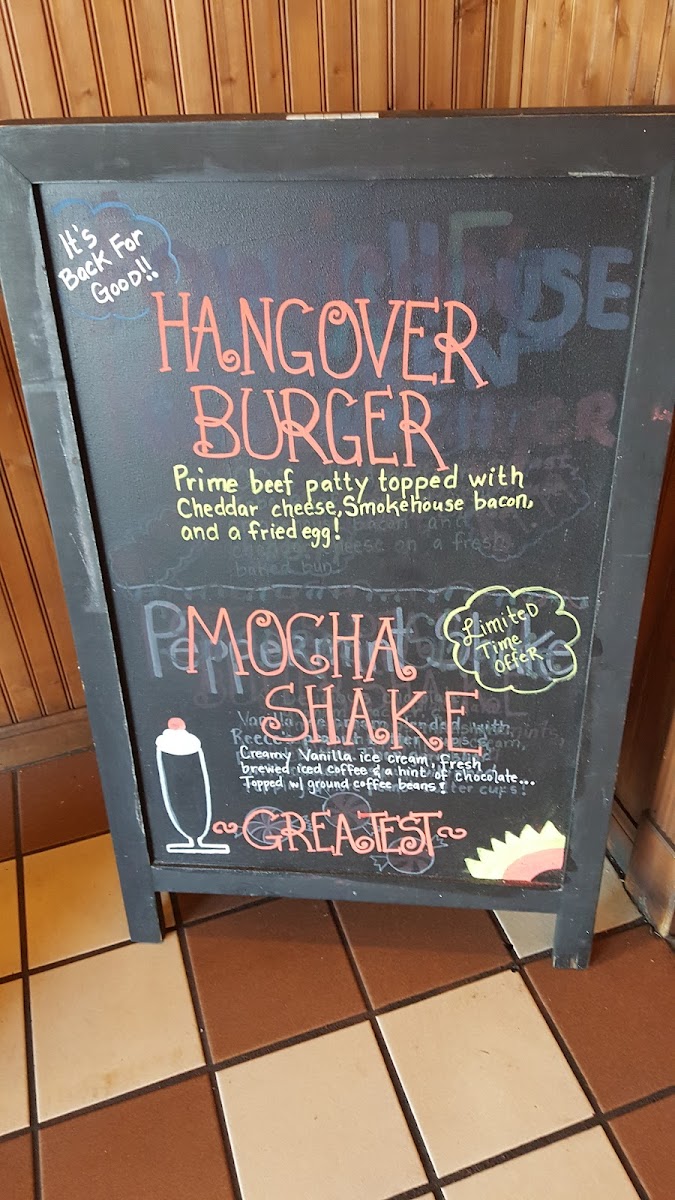 It's
Back For
Good!!
HANGOVER
BURGER
Prime beef patty topped with
Cheddar cheese, Smokehouse bacon,
and a fried egg!
Peppermint Shake
MOCHA
SHAKE
Limited
Time
Offer
Creamy Vanilla ice cream, fresh
brewed iced coffee & a hint of chocolate...
Topped w/ ground coffee beans!
~GREATEST~